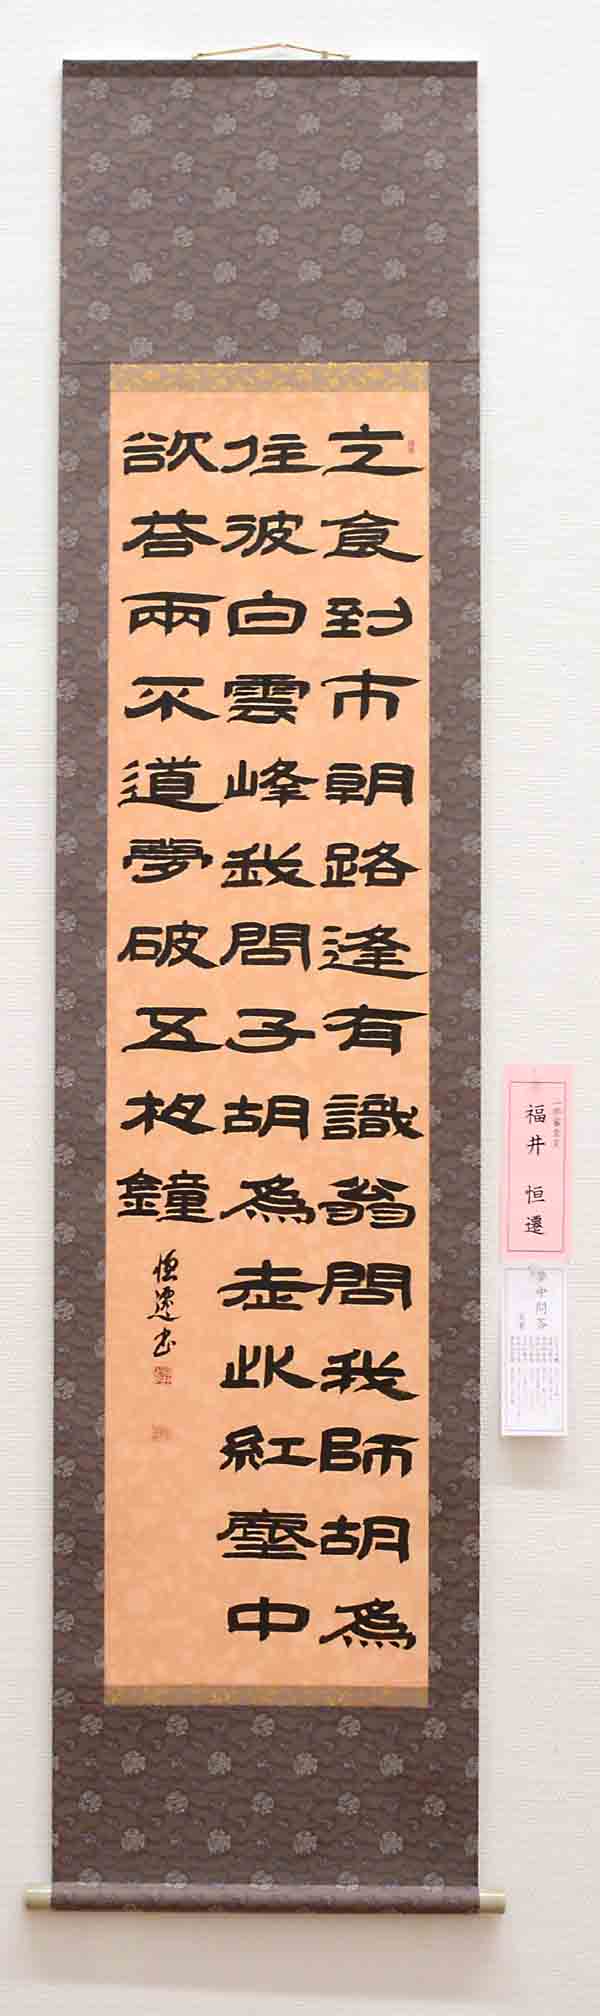 之食到市朝路逢有識翁問我師胡為
住彼白雲峰我問子胡為老此紅塵中
欲答兩不道夢破五更鐘
恒遷書
一部審査員
福井 恒遷
夢中問答